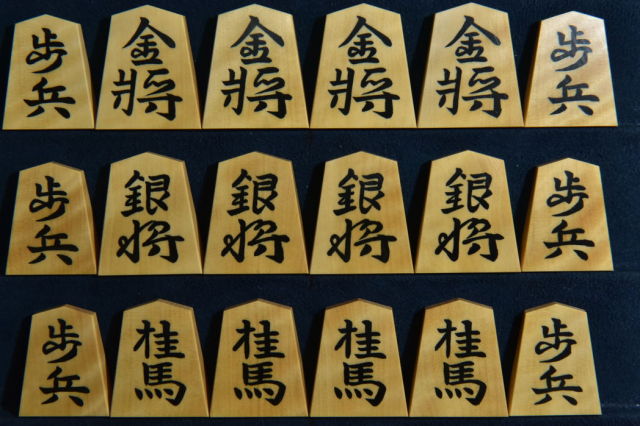 歩兵 金將 金將 金將 金將 歩兵
歩兵 銀将 銀将 銀将 銀将 歩兵
歩兵 桂馬 桂馬 桂馬 桂馬 歩兵